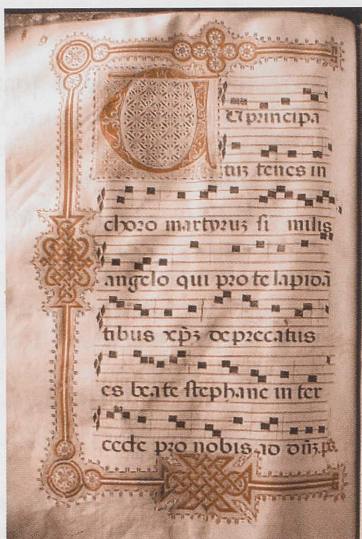 U principa
tuz tenes in
choro martyruz si milis
angelo qui pro te lapidā
tibus xp̄z deprecatus
es beate stephane in ter
cede pro nobis ad dn̄z. ps.